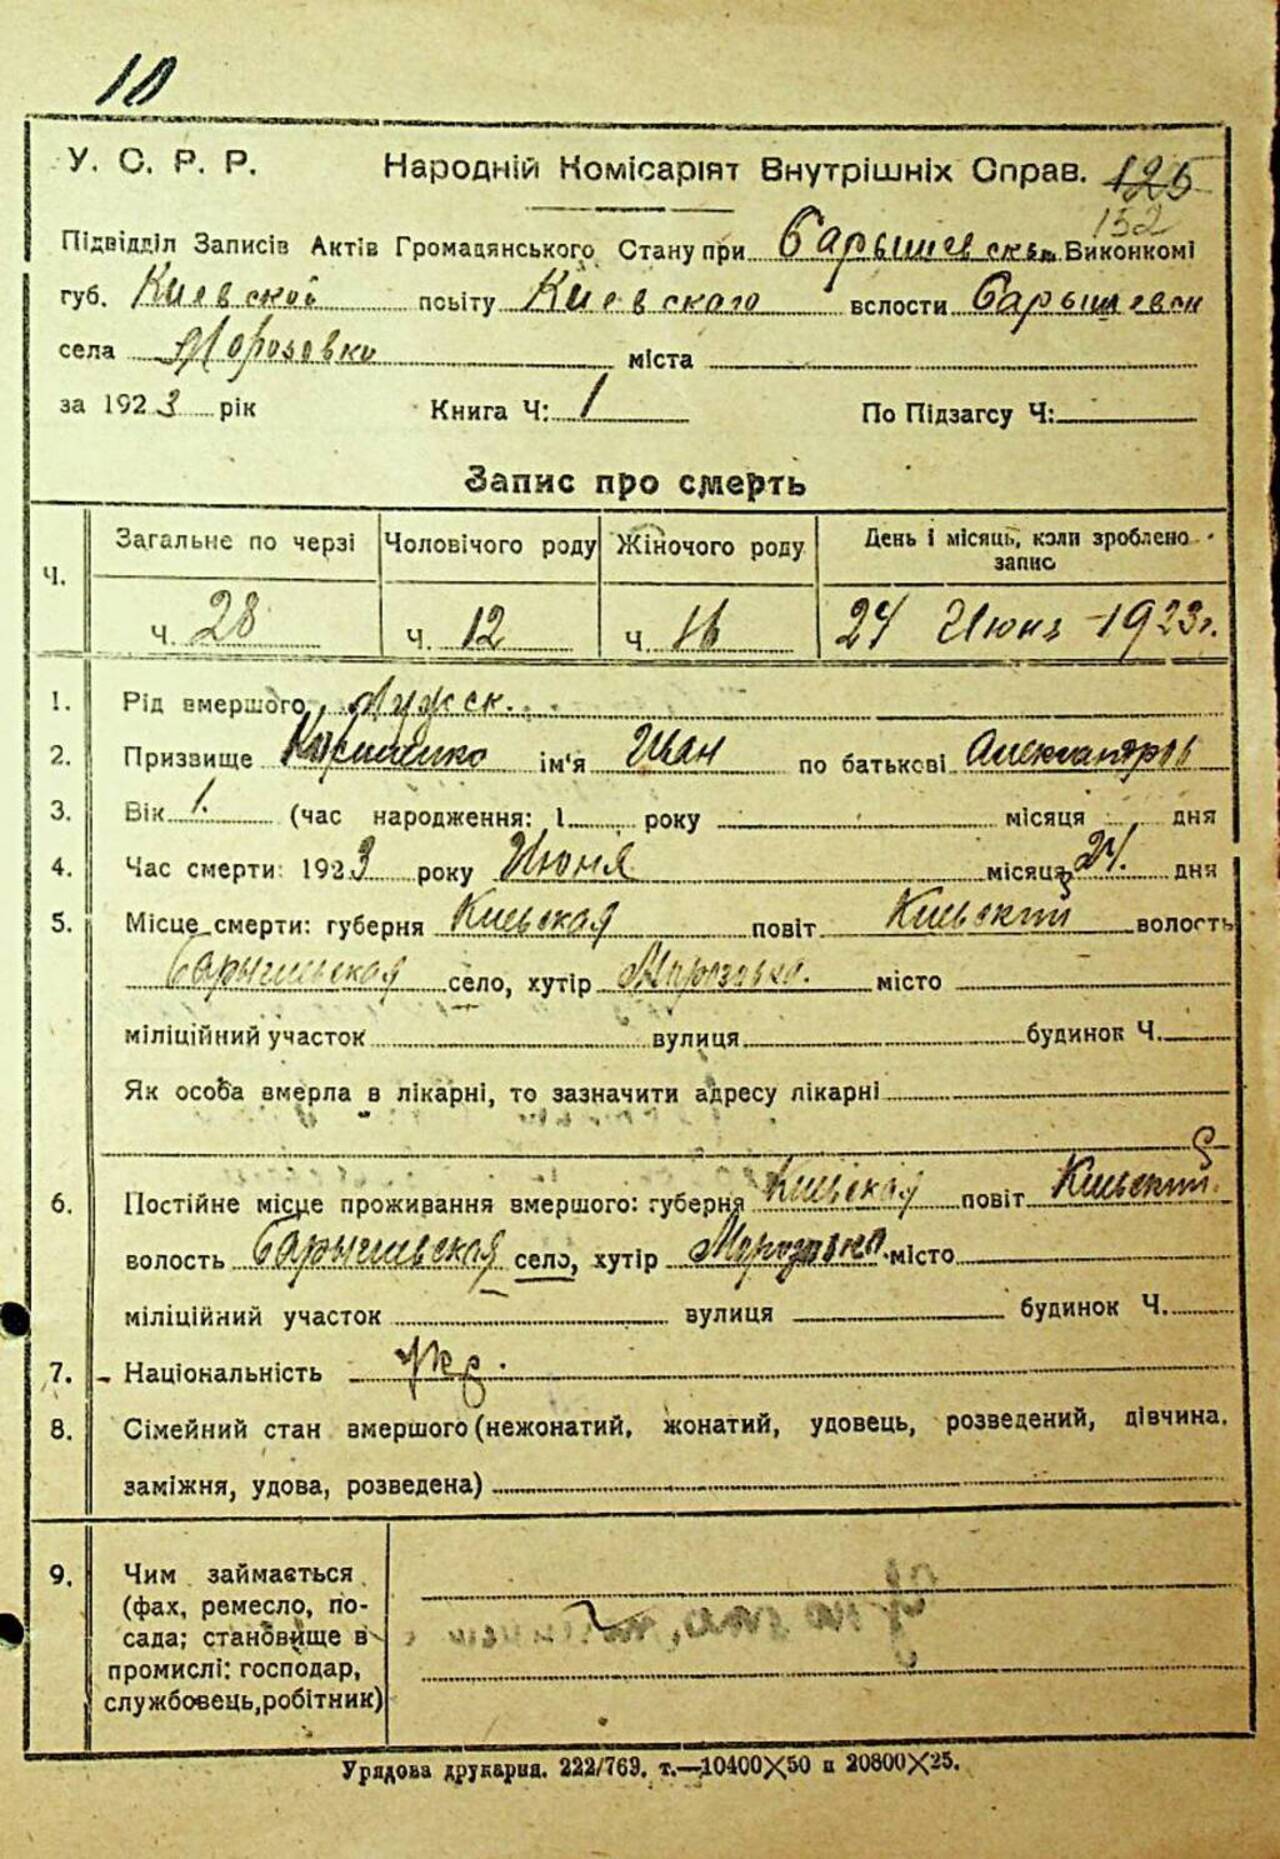 10
У. С. Р. Р. Народній Комісаріят Внутрішніх Справ. 125
152
Підвідділ Записів Актів Громадянського Стану при Барышевськ. Виконкомі
губ. Киевской повіту Киевского вслости Барышевск
села Морозовки міста
за 1923 рік Книга Ч: 1 По Підзагсу Ч:
Запис про смерть
Ч. Загальне по черзі Чоловічого роду Жіночого роду День і місяць, коли зроблено запис
ч. 28 ч. 12 ч. 16 24 Июня 1923г.
1. Рід вмершого Мужск.
2. Призвище ім'я Иван по батькові Александров
3. Вік 1. (час народження: 1 року місяця дня
4. Час смерти: 1923 року Июня місяця 24. дня
5. Місце смерти: губерня Киевская повіт Киевский волость
Барышевская село, хутір Морозовка. місто
міліційний участок вулиця будинок Ч.
Як особа вмерла в лікарні, то зазначити адресу лікарні
6. Постійне місце проживання вмершого: губерня Киевская повіт Киевский.
волость Барышевская село, хутір Морозовка. місто
міліційний участок вулиця будинок Ч.
7. Національність Укр.
8. Сімейний стан вмершого (нежонатий, жонатий, удовець, розведений, дівчина.
заміжня, удова, розведена)
9. Чим займається
(фах, ремесло, по-
сада; становище в
промислі: господар,
службовець, робітник)
Урядова друкарня. 222/769. т.—10400×50 и 20800×25.